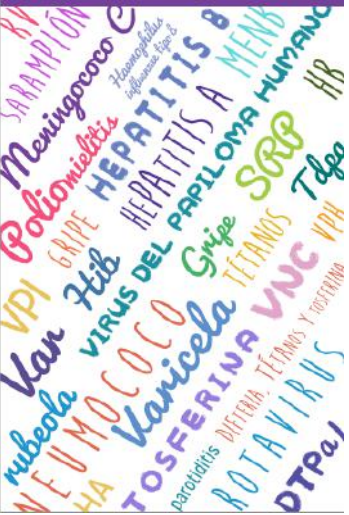 SARAMPIÓN
Meningococo C
Haemophilus
influenzae tipo b
HEPATITIS B
MENB
Poliomielitis
GRIPE
HEPATITIS A
VIRUS DEL PAPILOMA HUMANO
SRP
Hib
Gripe
TÉTANOS
VPI
Var
VNC
VPH
rubeola
NEUMOCOCO
Varicela
TOSFERINA
DIFTERIA, TÉTANOS Y TOSFERINA
HA
parotiditis
ROTAVIRUS